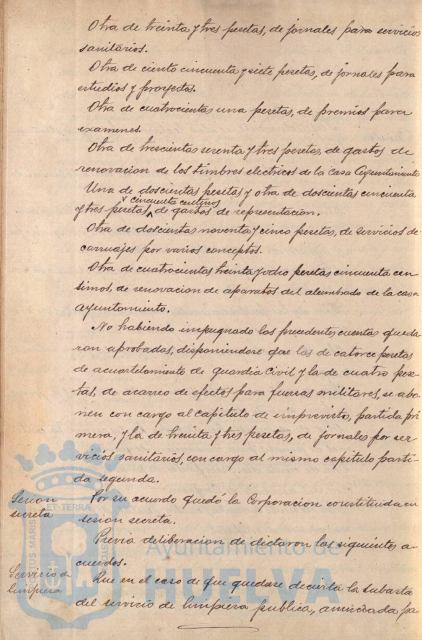 Otra de treinta y tres pesetas, de jornales para servicios
sanitarios.
Otra de ciento cincuenta y siete pesetas, de jornales para
estudios y proyectos.
Otra de cuatrocientas una pesetas, de premios para
examenes.
Otra de trescientas setenta y tres pesetas, de gastos de
renovacion de los timbres electricos de la Casa Ayuntamiento
Una de doscientas pesetas y otra de doscientas cincuenta
y cincuenta centimos
y tres pesetas de gastos de representacion.
Otra de doscientas noventa y cinco pesetas, de servicios de
carruajes por varios conceptos.
Otra de cuatrocientas treinta y ocho pesetas cincuenta cen-
timos, de renovacion de aparatos del alumbrado de la casa
ayuntamiento.
No habiendo impugnado las precedentes cuentas queda-
ron aprobadas, disponiendose que las de catorce pesetas
de acuartelamiento de guardia Civil y la de cuatro pese-
tas, de acarreo de efectos para fuerzas militares, se abo-
nen con cargo al capitulo de imprevisto, partida pri-
mera, y la de treinta y tres pesetas, de jornales por ser-
vicios sanitarios, con cargo al mismo capitulo parti-
da segunda.
Sesion
secreta
Por su acuerdo quedó la Corporacion constituida en
sesion secreta.
Previa deliberacion se dictaron los siguientes a-
cuerdos.
Servicio de
limpieza
Que en el caso de que quedase decierta la subasta
del servicio de limpieza publica, anunciada pa
Ayuntamiento de
HUELVA